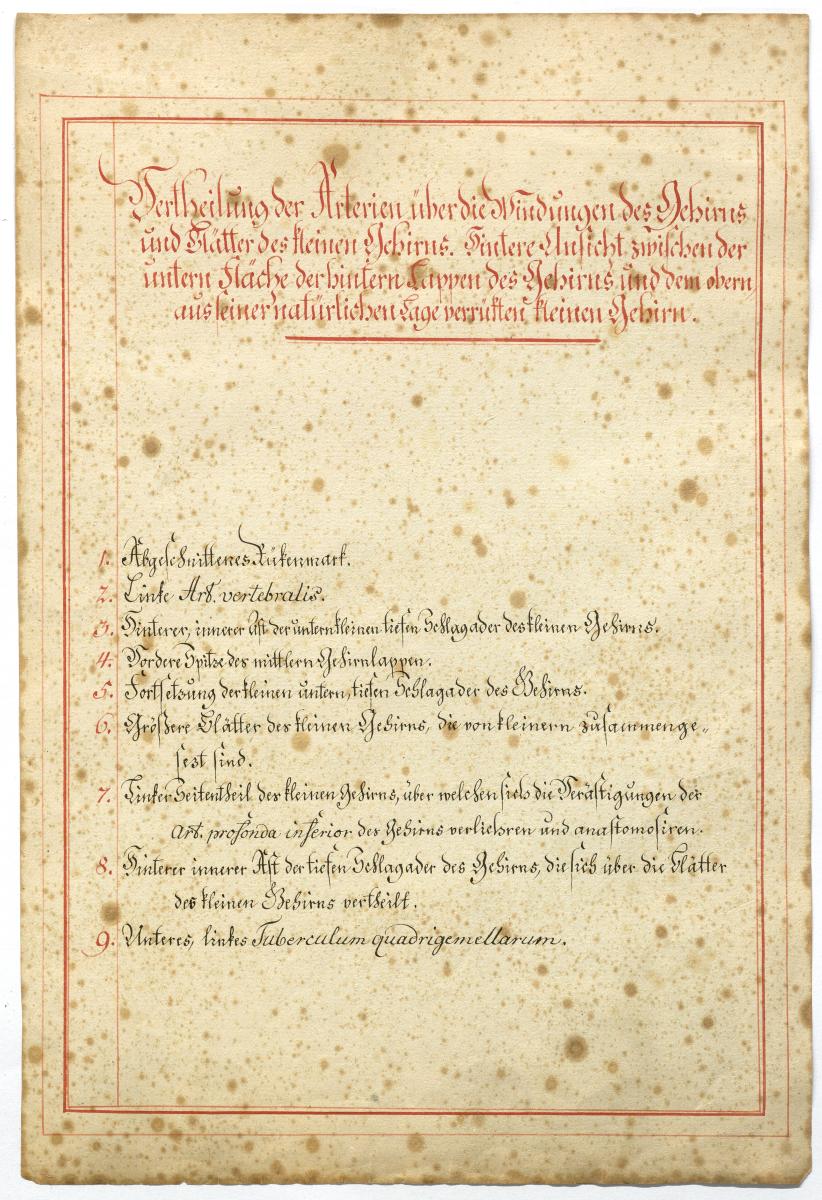 Vertheilung der Arterien über die Windungen des Gehirns
und Blätter des kleinen Gehirns. Hintere Ansicht zwischen der
untern Fläche der hintern Lappen des Gehirns und dem obern,
aus seiner natürlichen Lage verrükten kleinen Gehirn.
1. Abgeschnittenes Rükenmark.
2. Linke Art. vertebralis.
3. Hinterer, innerer Ast der untern kleinen tiefen Schlagader des kleinen Gehirns.
4. Vordere Spitze des mittlern Gehirnlappen.
5. Fortsetzung der kleinen untern, tiefen Schlagader des Gehirns.
6. Größere Blätter des kleinen Gehirns, die von kleinern zusammenge„
sezt sind.
7. Linker Seitentheil des kleinen Gehirns, über welchen sich die Verästigungen der
Art. profonda inferior des Gehirns verliehren und anastomosiren.
8. Hinterer innerer Ast der tiefen Schlagader des Gehirns, die sich über die Blätter
des kleinen Gehirns vertheilt.
9. Unteres, linkes Tuberculum quadrigemellarum.